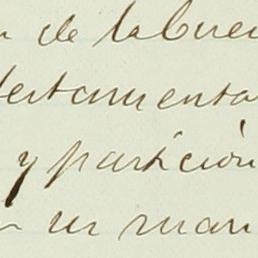 de la Cruz
testamenta
y particion
en un man